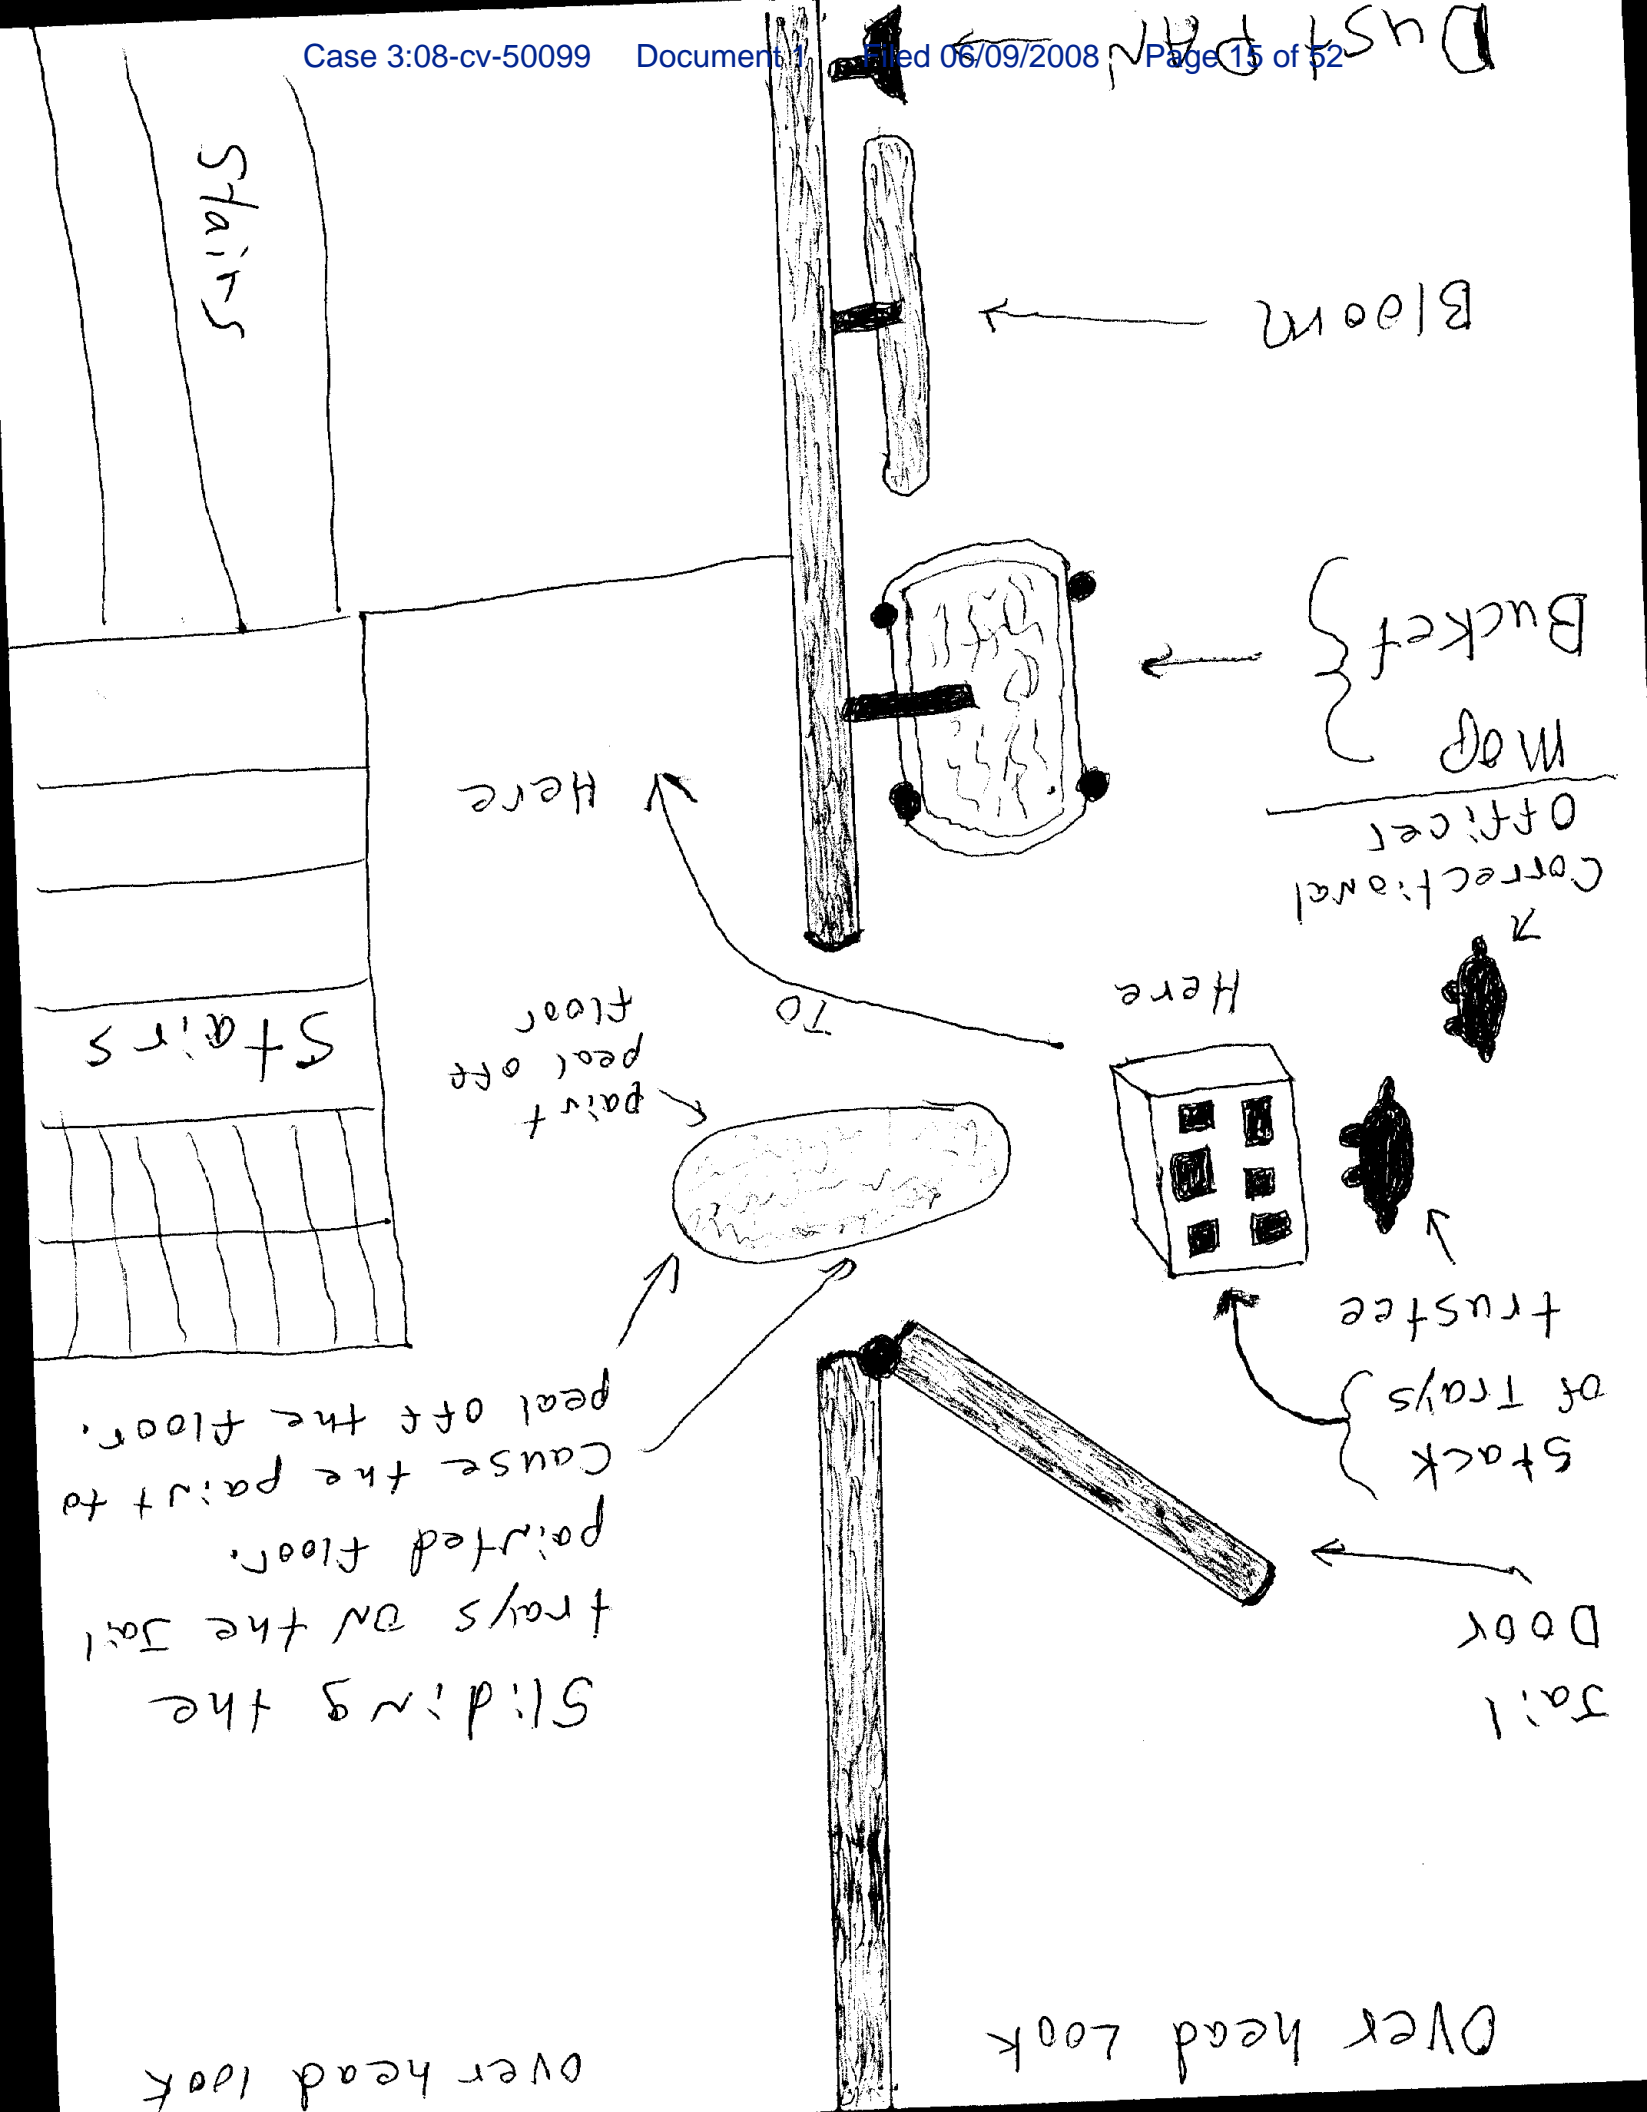 Case 3:08-cv-50099 Document 1 Filed 06/09/2008 Page 15 of 52
Over head Look
over head look
Jail
Door
Sliding the
trays ON the Jail
painted floor.
Cause the paint to
peal off the floor.
Stack
of Trays
trustee
paint
peal off
floor
Stairs
TO
Here
Here
Correctional
Officer
Mop
Bucket
Bloom
Stairs
Dust PAN